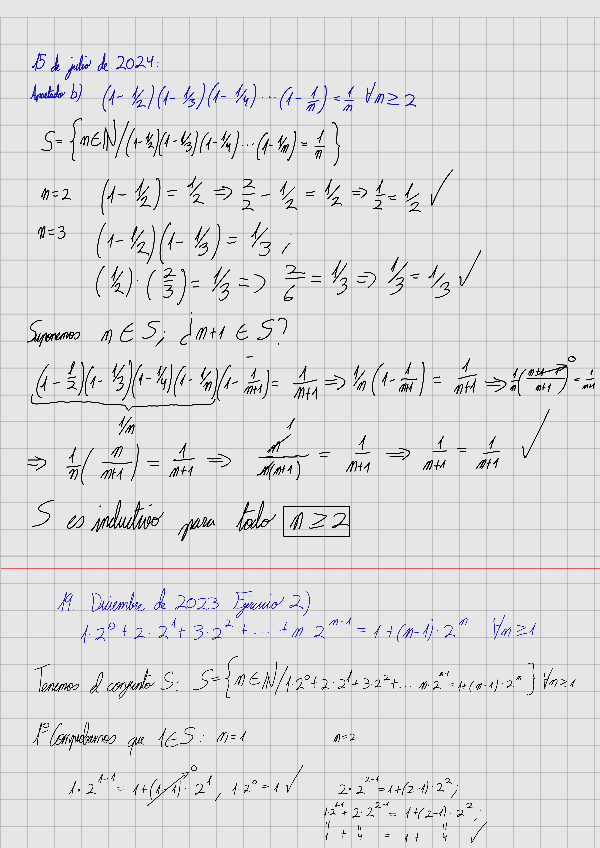 15 de julio de 2024:
Apartado b) (1 - 1/2)(1 - 1/3)(1 - 1/4) ... (1 - 1/n) = 1/n ∀n ≥ 2
S = {n ∈ ℕ / (1 - 1/2)(1 - 1/3)(1 - 1/4) ... (1 - 1/n) = 1/n}
n = 2 (1 - 1/2) = 1/2 ⇒ 2/2 - 1/2 = 1/2 ⇒ 1/2 = 1/2 ✓
n = 3 (1 - 1/2)(1 - 1/3) = 1/3 ;
(1/2) · (2/3) = 1/3 ⇒ 2/6 = 1/3 ⇒ 1/3 = 1/3 ✓
Suponemos n ∈ S; ¿n+1 ∈ S?
(1 - 1/2)(1 - 1/3)(1 - 1/4)(1 - 1/n)(1 - 1/(n+1)) = 1/(n+1) ⇒ 1/n (1 - 1/(n+1)) = 1/(n+1) ⇒ 1/n ((n+1-1)/(n+1)) = 1/(n+1)
1/n
⇒ 1/n (n/(n+1)) = 1/(n+1) ⇒ n/(n(n+1)) = 1/(n+1) ⇒ 1/(n+1) = 1/(n+1) ✓
S es inductivo para todo n ≥ 2
19. Diciembre de 2023 Ejercicio 2)
1·2⁰ + 2·2¹ + 3·2² + ... + n·2ⁿ⁻¹ = 1 + (n-1)·2ⁿ ∀n ≥ 1
Tenemos el conjunto S: S = {n ∈ ℕ / 1·2⁰ + 2·2¹ + 3·2² + ... n·2ⁿ⁻¹ = 1 + (n-1)·2ⁿ} ∀n ≥ 1
1º Comprobamos que 1 ∈ S: n = 1 n = 2
1·2¹⁻¹ = 1 + (1-1)·2¹, 1·2⁰ = 1 ✓ 2·2²⁻¹ = 1 + (2-1)·2²;
1·2¹⁻¹ + 2·2²⁻¹ = 1 + (2-1)·2²;
1 + 4 = 1 + 4 ✓